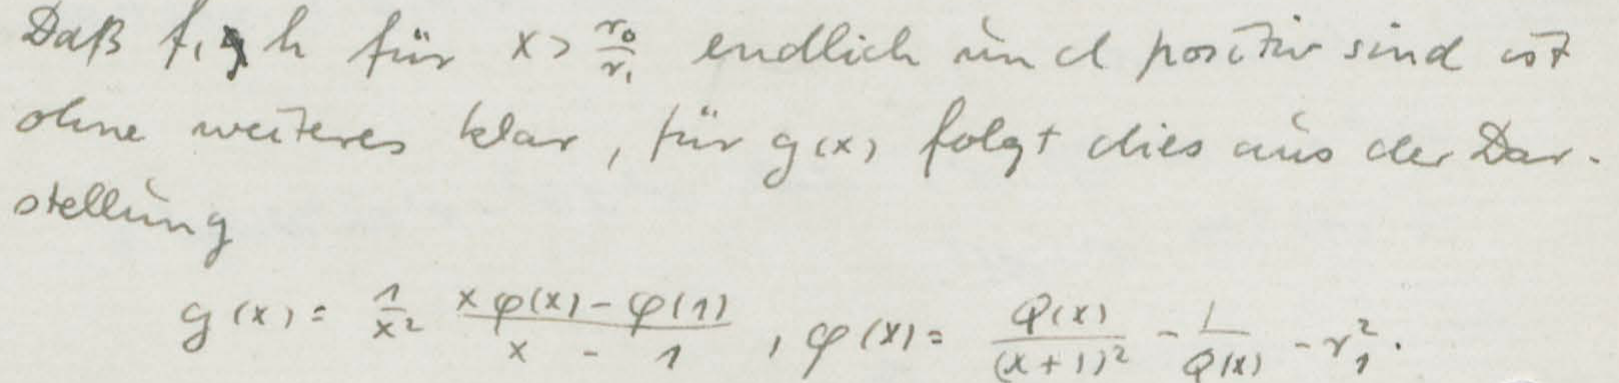 Daß f, h für x > r₀/r₁ endlich und positiv sind ist
ohne weiteres klar, für g(x) folgt dies aus der Dar-
stellung
g(x) = 1/x² (xφ(x) - φ(1))/(x - 1), φ(x) = Q(x)/(x+1)² - 1/Q(x) - r₁².